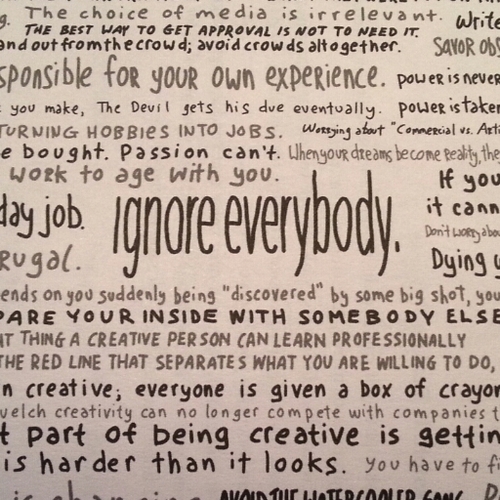 g. The choice of media is irrelevant. Write
THE BEST WAY TO GET APPROVAL IS NOT TO NEED IT.
and out from the crowd; avoid crowds altogether. SAVOR obs
sponsible for your own experience. power is never
you make, The Devil gets his due eventually. power is taken
TURNING HOBBIES INTO JOBS. Worrying about "Commercial vs. Arti
e bought. Passion can't. When your dreams become reality, they
work to age with you. If you
day job. ignore everybody. it cann
Don't worry abou
Rugal. Dying
ends on you suddenly being "discovered" by some big shot, you
PARE YOUR INSIDE WITH SOMEBODY ELSE
NT THING A CREATIVE PERSON CAN LEARN PROFESSIONALLY
THE RED LINE THAT SEPARATES WHAT YOU ARE WILLING TO DO,
n creative; everyone is given a box of crayon
welch creativity can no longer compete with companies t
t part of being creative is gettin
is harder than it looks. You have to fi
AVOID THE WATERCOOLER GANG